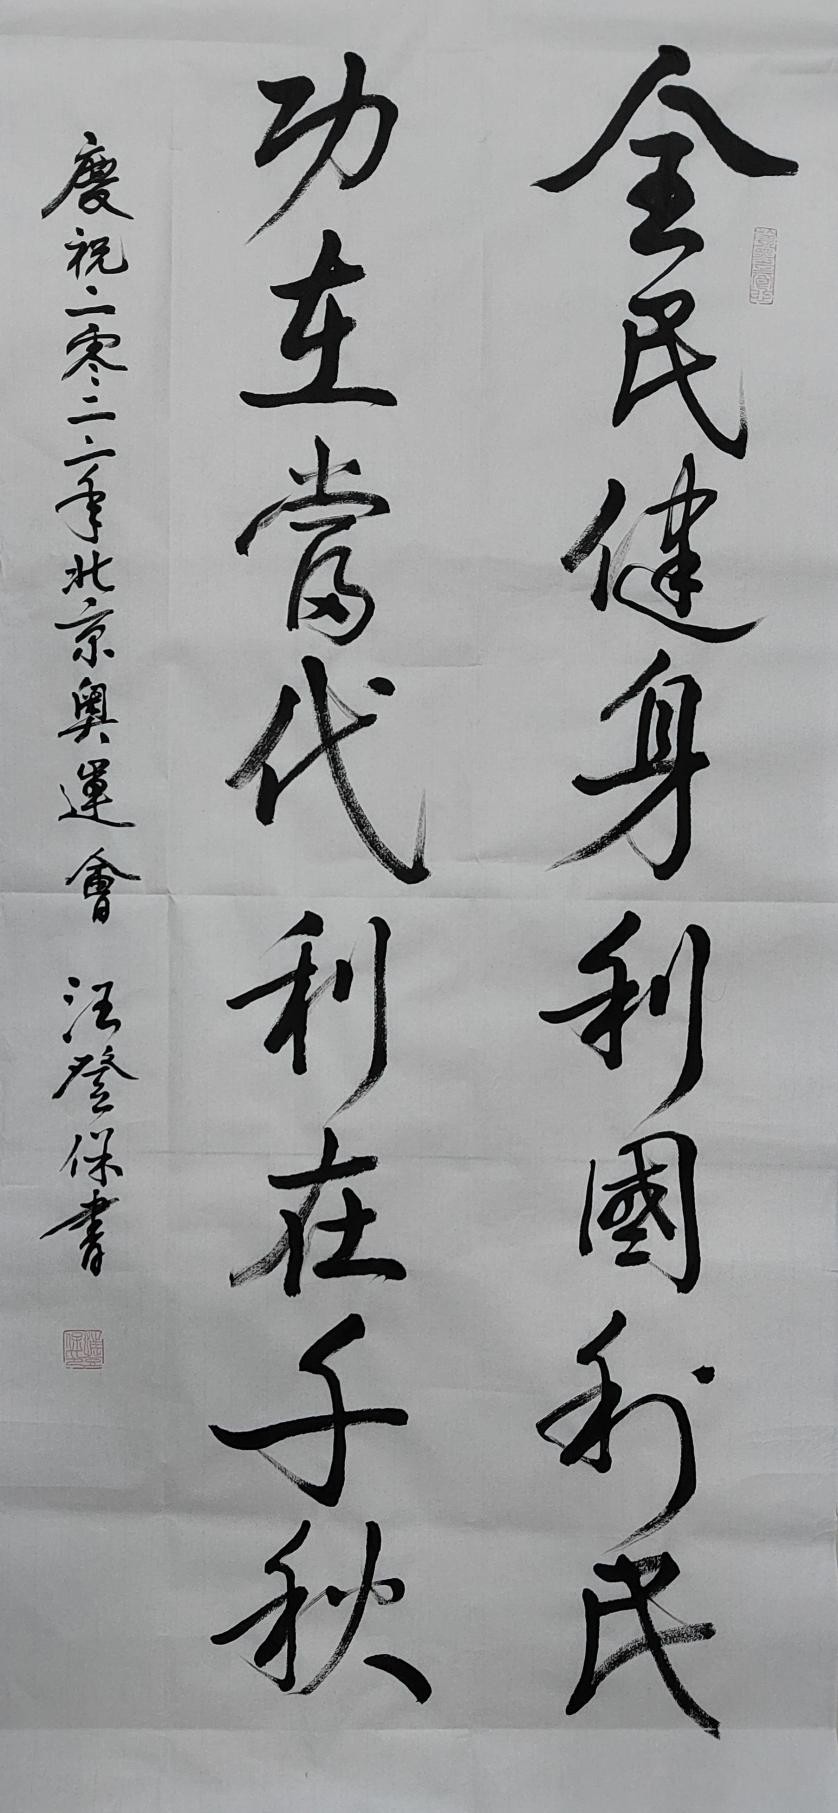 全民健身利國利民
功在當代利在千秋
慶祝二零二二年北京奧運會 汪登保書